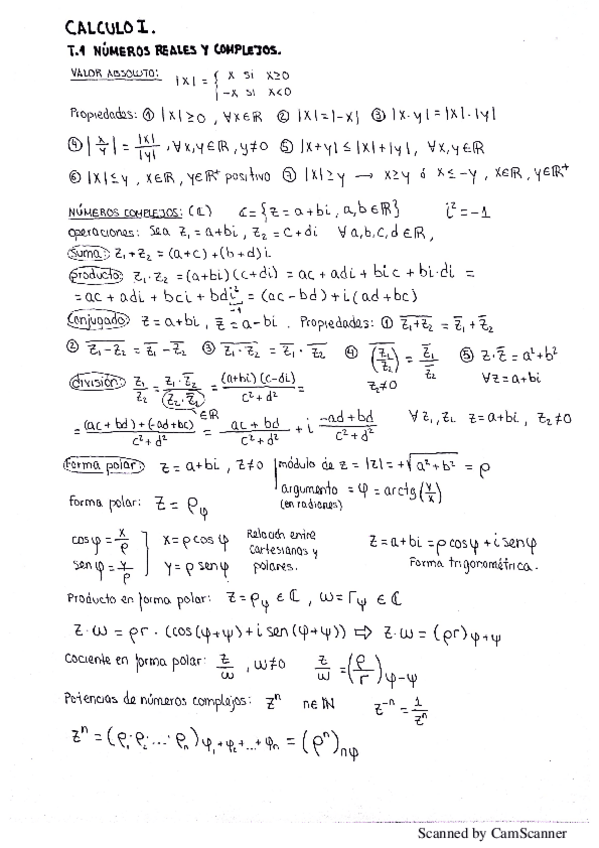 CALCULO I.
T.1 NÚMEROS REALES Y COMPLEJOS.
VALOR ABSOLUTO: |x| = { x si x≥0
-x si x<0
Propiedades: ① |x| ≥ 0, ∀x∈ℝ ② |x| = |-x| ③ |x·y| = |x|·|y|
④ |x/y| = |x|/|y|, ∀x,y∈ℝ, y≠0 ⑤ |x+y| ≤ |x|+|y|, ∀x,y∈ℝ
⑥ |x| ≤ y, x∈ℝ, y∈ℝ⁺ positivo ⑦ |x| ≥ y → x≥y ó x≤-y, x∈ℝ, y∈ℝ⁺
NÚMEROS COMPLEJOS: (ℂ) ℂ = {z = a+bi, a,b∈ℝ} i² = -1
operaciones: Sea z₁ = a+bi, z₂ = c+di ∀a,b,c,d∈ℝ,
suma: z₁+z₂ = (a+c)+(b+d)i.
producto: z₁·z₂ = (a+bi)(c+di) = ac + adi + bic + bi·di =
= ac + adi + bci + bdi² = (ac-bd) + i(ad+bc)
-1
Conjugado z = a+bi, z̅ = a-bi. Propiedades: ① \overline{z₁+z₂} = z̅₁ + z̅₂
② \overline{z₁-z₂} = z̅₁ - z̅₂ ③ \overline{z₁·z₂} = z̅₁ · z̅₂ ④ \overline{(z₁/z₂)} = z̅₁/z̅₂ ⑤ z·z̅ = a²+b²
z₂≠0 ∀z = a+bi
división: z₁/z₂ = z₁·z̅₂/(z₂·z̅₂) = (a+bi)(c-di)/(c²+d²) =
∈ℝ
= ((ac+bd)+(-ad+bc))/(c²+d²) = (ac+bd)/(c²+d²) + i (-ad+bd)/(c²+d²) ∀z₁,z₂ z = a+bi, z₂≠0
Forma polar: z = a+bi, z≠0 | módulo de z = |z| = +√(a²+b²) = ρ
argumento = φ = arctg(y/x)
(en radianes)
forma polar: z = ρ_φ
cosφ = x/ρ x = ρcosφ Relación entre z = a+bi = ρcosφ + i senφ
senφ = y/ρ y = ρ senφ cartesianas y Forma trigonométrica.
polares.
Producto en forma polar: z = ρ_φ ∈ ℂ, ω = r_ψ ∈ ℂ
z·ω = ρr · (cos(φ+ψ) + i sen(φ+ψ)) ⇒ z·ω = (ρr)_φ+ψ
Cociente en forma polar: z/ω, ω≠0 z/ω = (ρ/r)_φ-ψ
Potencias de números complejos: zⁿ n∈ℕ z⁻ⁿ = 1/zⁿ
zⁿ = (ρ₁·ρ₂·...·ρₙ)_φ₁+φ₂+...+φₙ = (ρⁿ)_nφ
Scanned by CamScanner